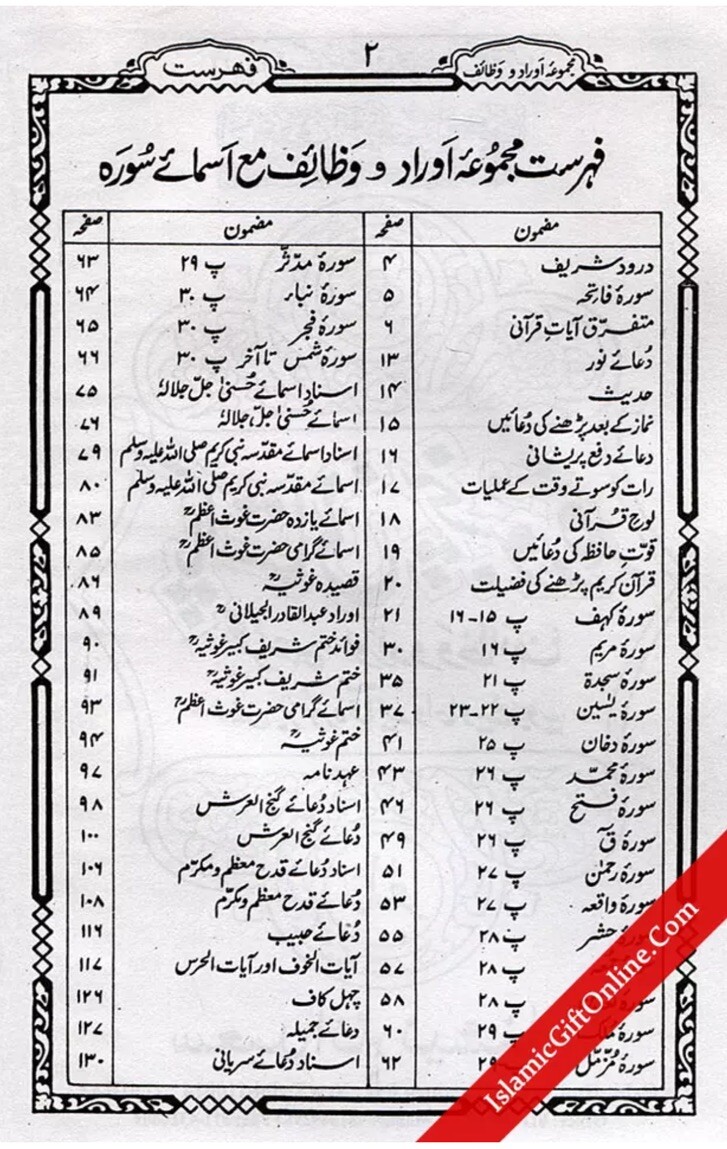 مجموعہ اوراد و وظائف
۲
فہرست
فہرست مجموعۂ اوراد و وظائف مع اسمائے سورہ
مضمون صفحہ مضمون صفحہ
درود شریف ۴ سورۂ مدثر پ ۲۹ ۶۳
سورۂ فاتحہ ۵ سورۂ نباء پ ۳۰ ۶۴
متفرق آیات قرآنی ۶ سورۂ فجر پ ۳۰ ۶۵
دعائے نور ۱۳ سورۂ شمس تا آخر پ ۳۰ ۶۶
حدیث ۱۴ اسناد اسمائے حسنیٰ جل جلالہٗ ۷۵
نماز کے بعد پڑھنے کی دعائیں ۱۵ اسمائے حسنیٰ جل جلالہٗ ۷۶
دعائے دفع پریشانی ۱۶ اسناد اسمائے مقدسہ نبی کریم صلی اللہ علیہ وسلم ۷۹
رات کو سوتے وقت کے عملیات ۱۷ اسمائے مقدسہ نبی کریم صلی اللہ علیہ وسلم ۸۰
لوح قرآنی ۱۸ اسمائے یازدہ حضرت غوث اعظمؒ ۸۳
قوت حافظہ کی دعائیں ۱۹ اسمائے گرامی حضرت غوث اعظمؒ ۸۵
قرآن کریم پڑھنے کی فضیلت ۲۰ قصیدہ غوثیہؒ ۸۶
سورۂ کہف پ ۱۵-۱۶ ۲۱ اوراد عبدالقادر الجیلانیؒ ۸۹
سورۂ مریم پ ۱۶ ۳۰ فوائد ختم شریف کبیر غوثیہؒ ۹۰
سورۂ سجدۃ پ ۲۱ ۳۵ ختم شریف کبیر غوثیہؒ ۹۱
سورۂ یٰسین پ ۲۲-۲۳ ۳۷ اسمائے گرامی حضرت غوث اعظمؒ ۹۳
سورۂ دخان پ ۲۵ ۴۱ ختم غوثیہؒ ۹۴
سورۂ محمد پ ۲۶ ۴۳ عہد نامہ ۹۷
سورۂ فتح پ ۲۶ ۴۶ اسناد دعائے گنج العرش ۹۸
سورۂ قٓ پ ۲۶ ۴۹ دعائے گنج العرش ۱۰۰
سورۂ رحمٰن پ ۲۷ ۵۱ اسناد دعائے قدح معظم و مکرم ۱۰۶
سورۂ واقعہ پ ۲۷ ۵۳ دعائے قدح معظم و مکرم ۱۰۸
سورۂ حشر پ ۲۸ ۵۵ دعائے حبیب ۱۱۶
پ ۲۸ ۵۷ آیات الخوف اور آیات الحرس ۱۱۷
سورۂ پ ۲۸ ۵۸ چہل کاف ۱۲۶
سورۂ ملک پ ۲۹ ۶۰ دعائے جمیلہ ۱۲۷
سورۂ مزمل ۲۹ ۶۲ اسناد دعائے سریانی ۱۳۰
IslamicGiftOnline.Com